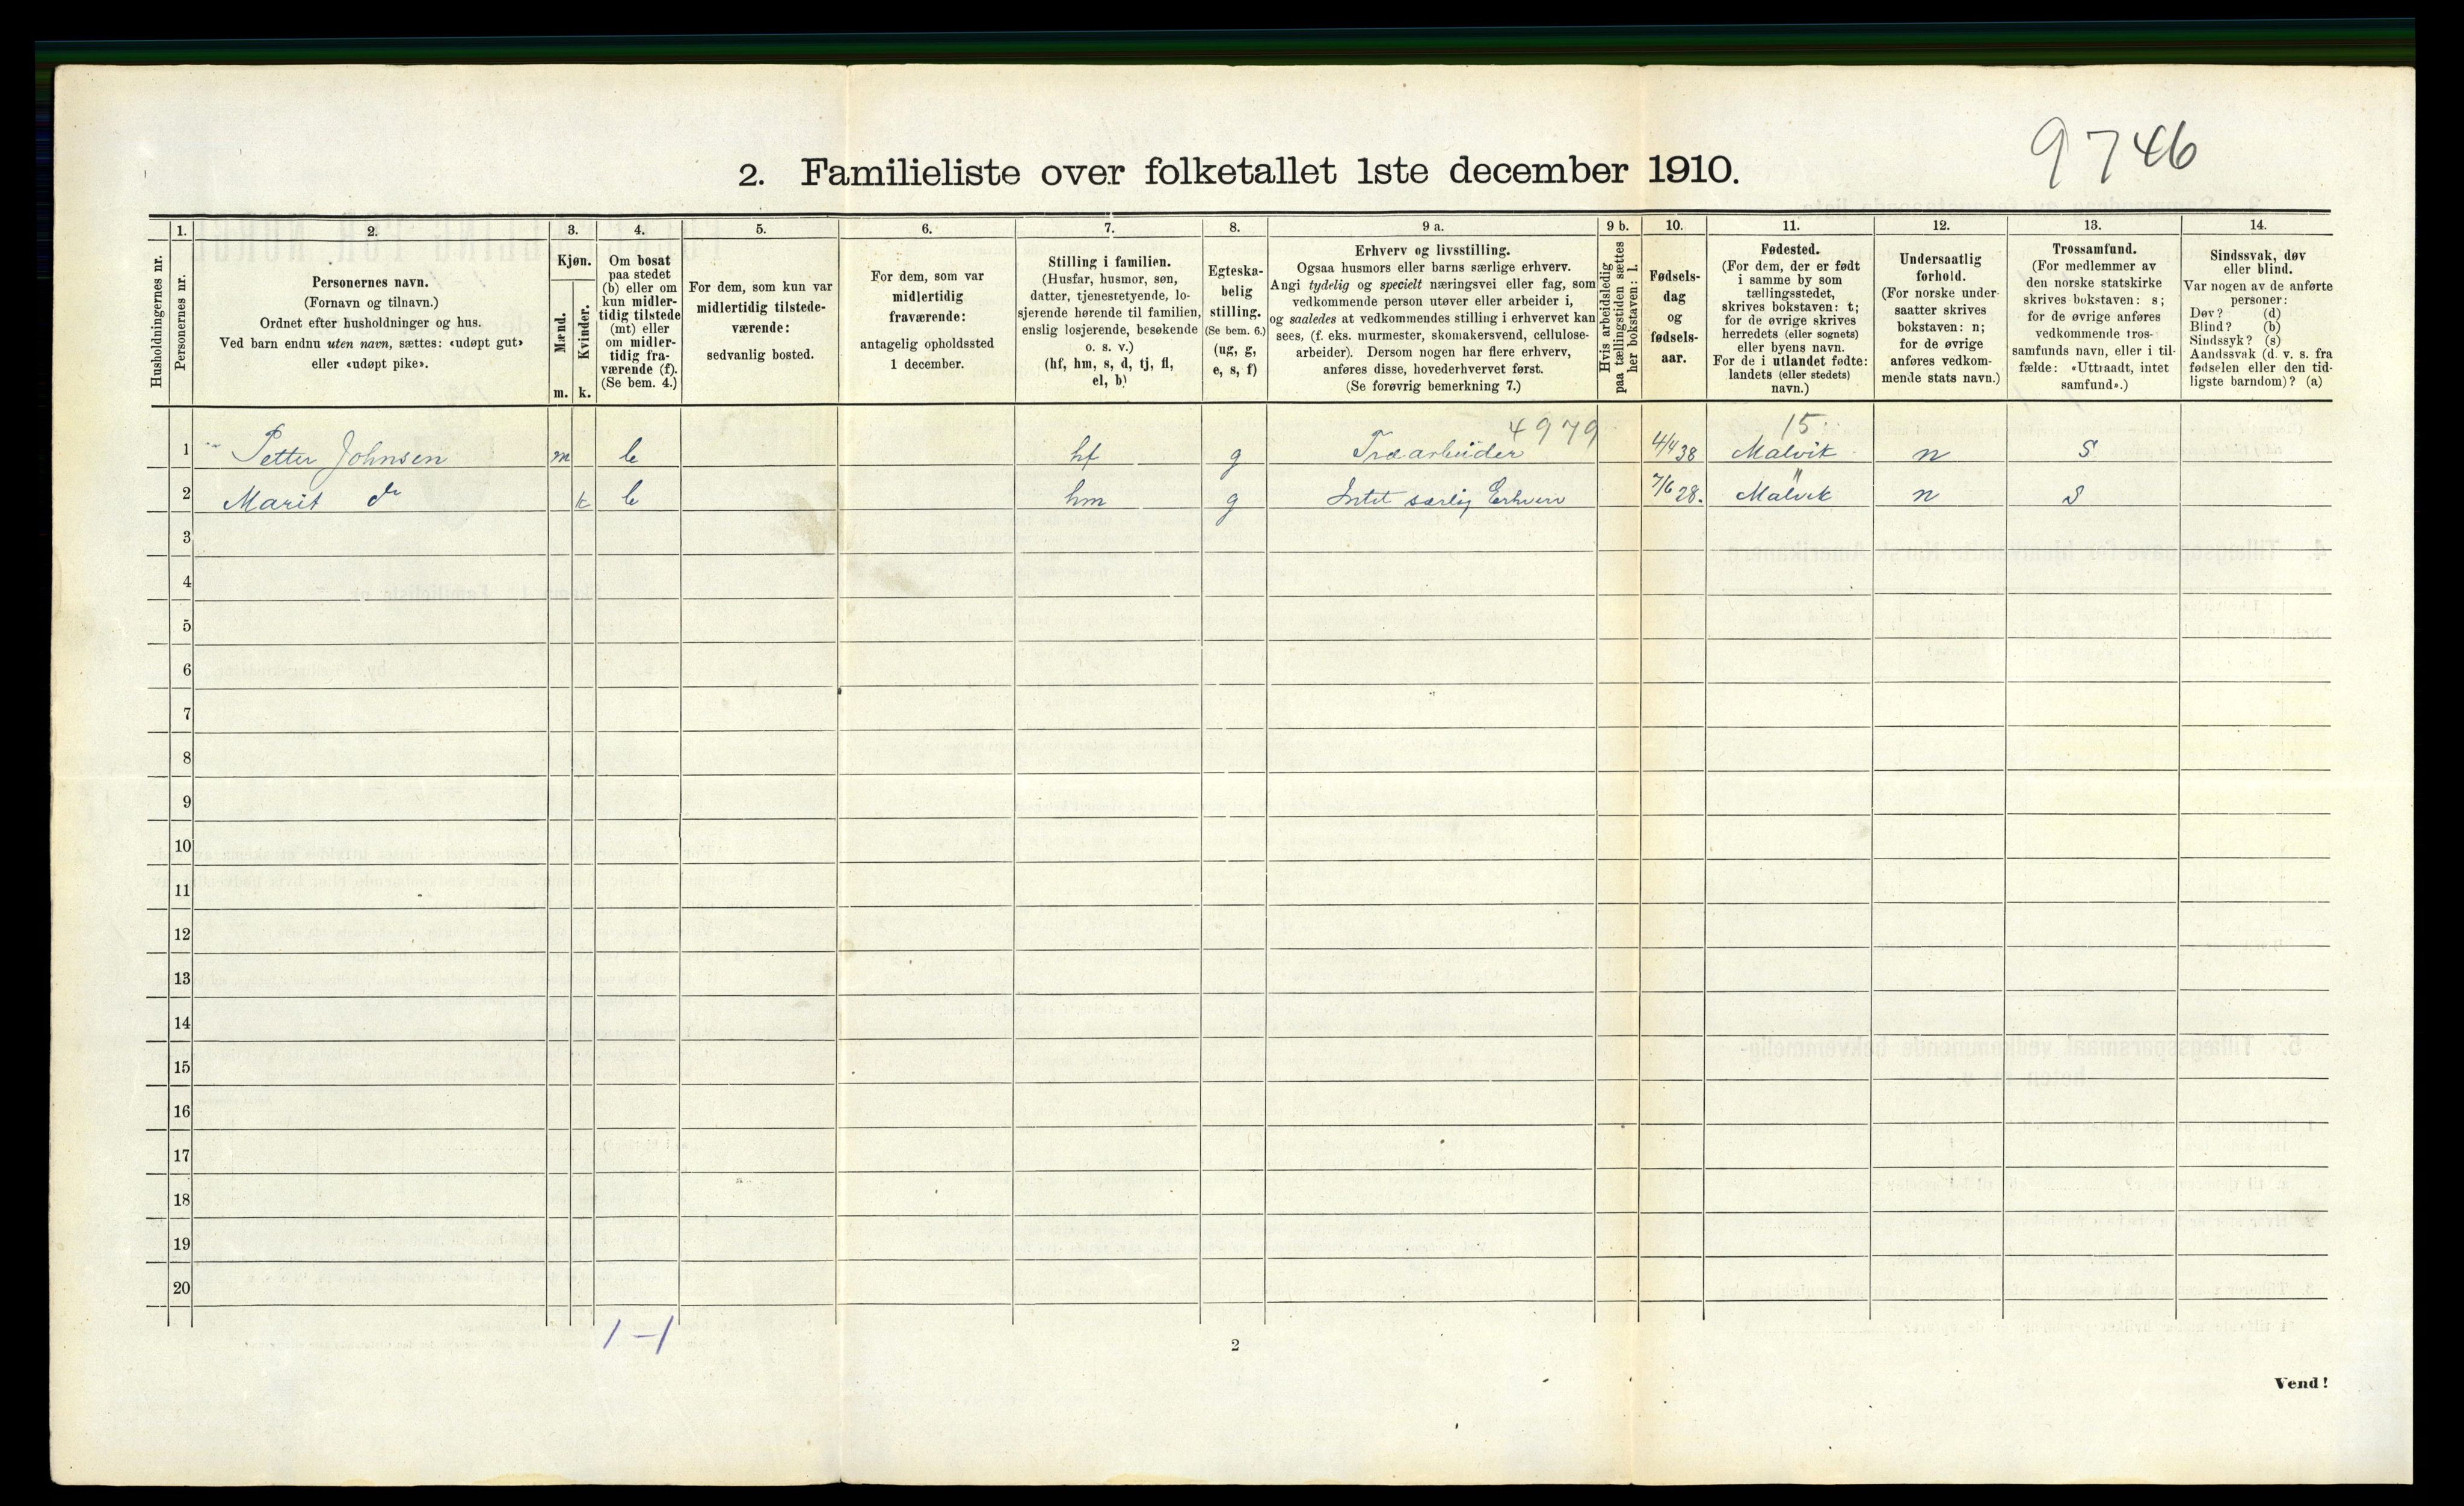 9746
2. Familieliste over folketallet 1ste december 1910.
1. 2. 3. 4. 5. 6. 7. 8. 9 a. 9 b. 10. 11. 12. 13. 14.
Husholdningernes nr.
Personernes nr.
Personernes navn.
(Fornavn og tilnavn.)
Ordnet efter husholdninger og hus.
Ved barn endnu uten navn, sættes: «udøpt gut»
eller «udøpt pike».
Kjøn.
Mænd.
Kvinder.
m. k.
Om bosat
paa stedet
(b) eller om
kun midler-
tidig tilstede
(mt) eller
om midler-
tidig fra-
værende (f).
(Se bem. 4.)
For dem, som kun var
midlertidig tilstede-
værende:
sedvanlig bosted.
For dem, som var
midlertidig
fraværende:
antagelig opholdssted
1 december.
Stilling i familien.
(Husfar, husmor, søn,
datter, tjenestetyende, lo-
sjerende hørende til familien,
enslig losjerende, besøkende
o. s. v.)
(hf, hm, s, d, tj, fl,
el, b)
Egteska-
belig
stilling.
(Se bem. 6.)
(ug, g,
e, s, f)
Erhverv og livsstilling.
Ogsaa husmors eller barns særlige erhverv.
Angi tydelig og specielt næringsvei eller fag, som
vedkommende person utøver eller arbeider i,
og saaledes at vedkommendes stilling i erhvervet kan
sees, (f. eks. murmester, skomakersvend, cellulose-
arbeider). Dersom nogen har flere erhverv,
anføres disse, hovederhvervet først.
(Se forøvrig bemerkning 7.)
Hvis arbeidsledig
paa tællingstiden sættes
her bokstaven: l.
Fødsels-
dag
og
fødsels-
aar.
Fødested.
(For dem, der er født
i samme by som
tællingsstedet,
skrives bokstaven: t;
for de øvrige skrives
herredets (eller sognets)
eller byens navn.
For de i utlandet fødte:
landets (eller stedets)
navn.)
Undersaatlig
forhold.
(For norske under-
saatter skrives
bokstaven: n;
for de øvrige
anføres vedkom-
mende stats navn.)
Trossamfund.
(For medlemmer av
den norske statskirke
skrives bokstaven: s;
for de øvrige anføres
vedkommende tros-
samfunds navn, eller i til-
fælde: «Uttraadt, intet
samfund».)
Sindssvak, døv
eller blind.
Var nogen av de anførte
personer:
Døv? (d)
Blind? (b)
Sindssyk? (s)
Aandssvak (d. v. s. fra
fødselen eller den tid-
ligste barndom)? (a)
4979 15.
1 Petter Johnsen m b hf g Træarbeider 4/4 38 Malvik n S
2 Marit do k b hm g Intet særlig Erhverv 7/6 28. Malvik n S
3
4
5
6
7
8
9
10
11
12
13
14
15
16
17
18
19
20
1 – 1
2
Vend!